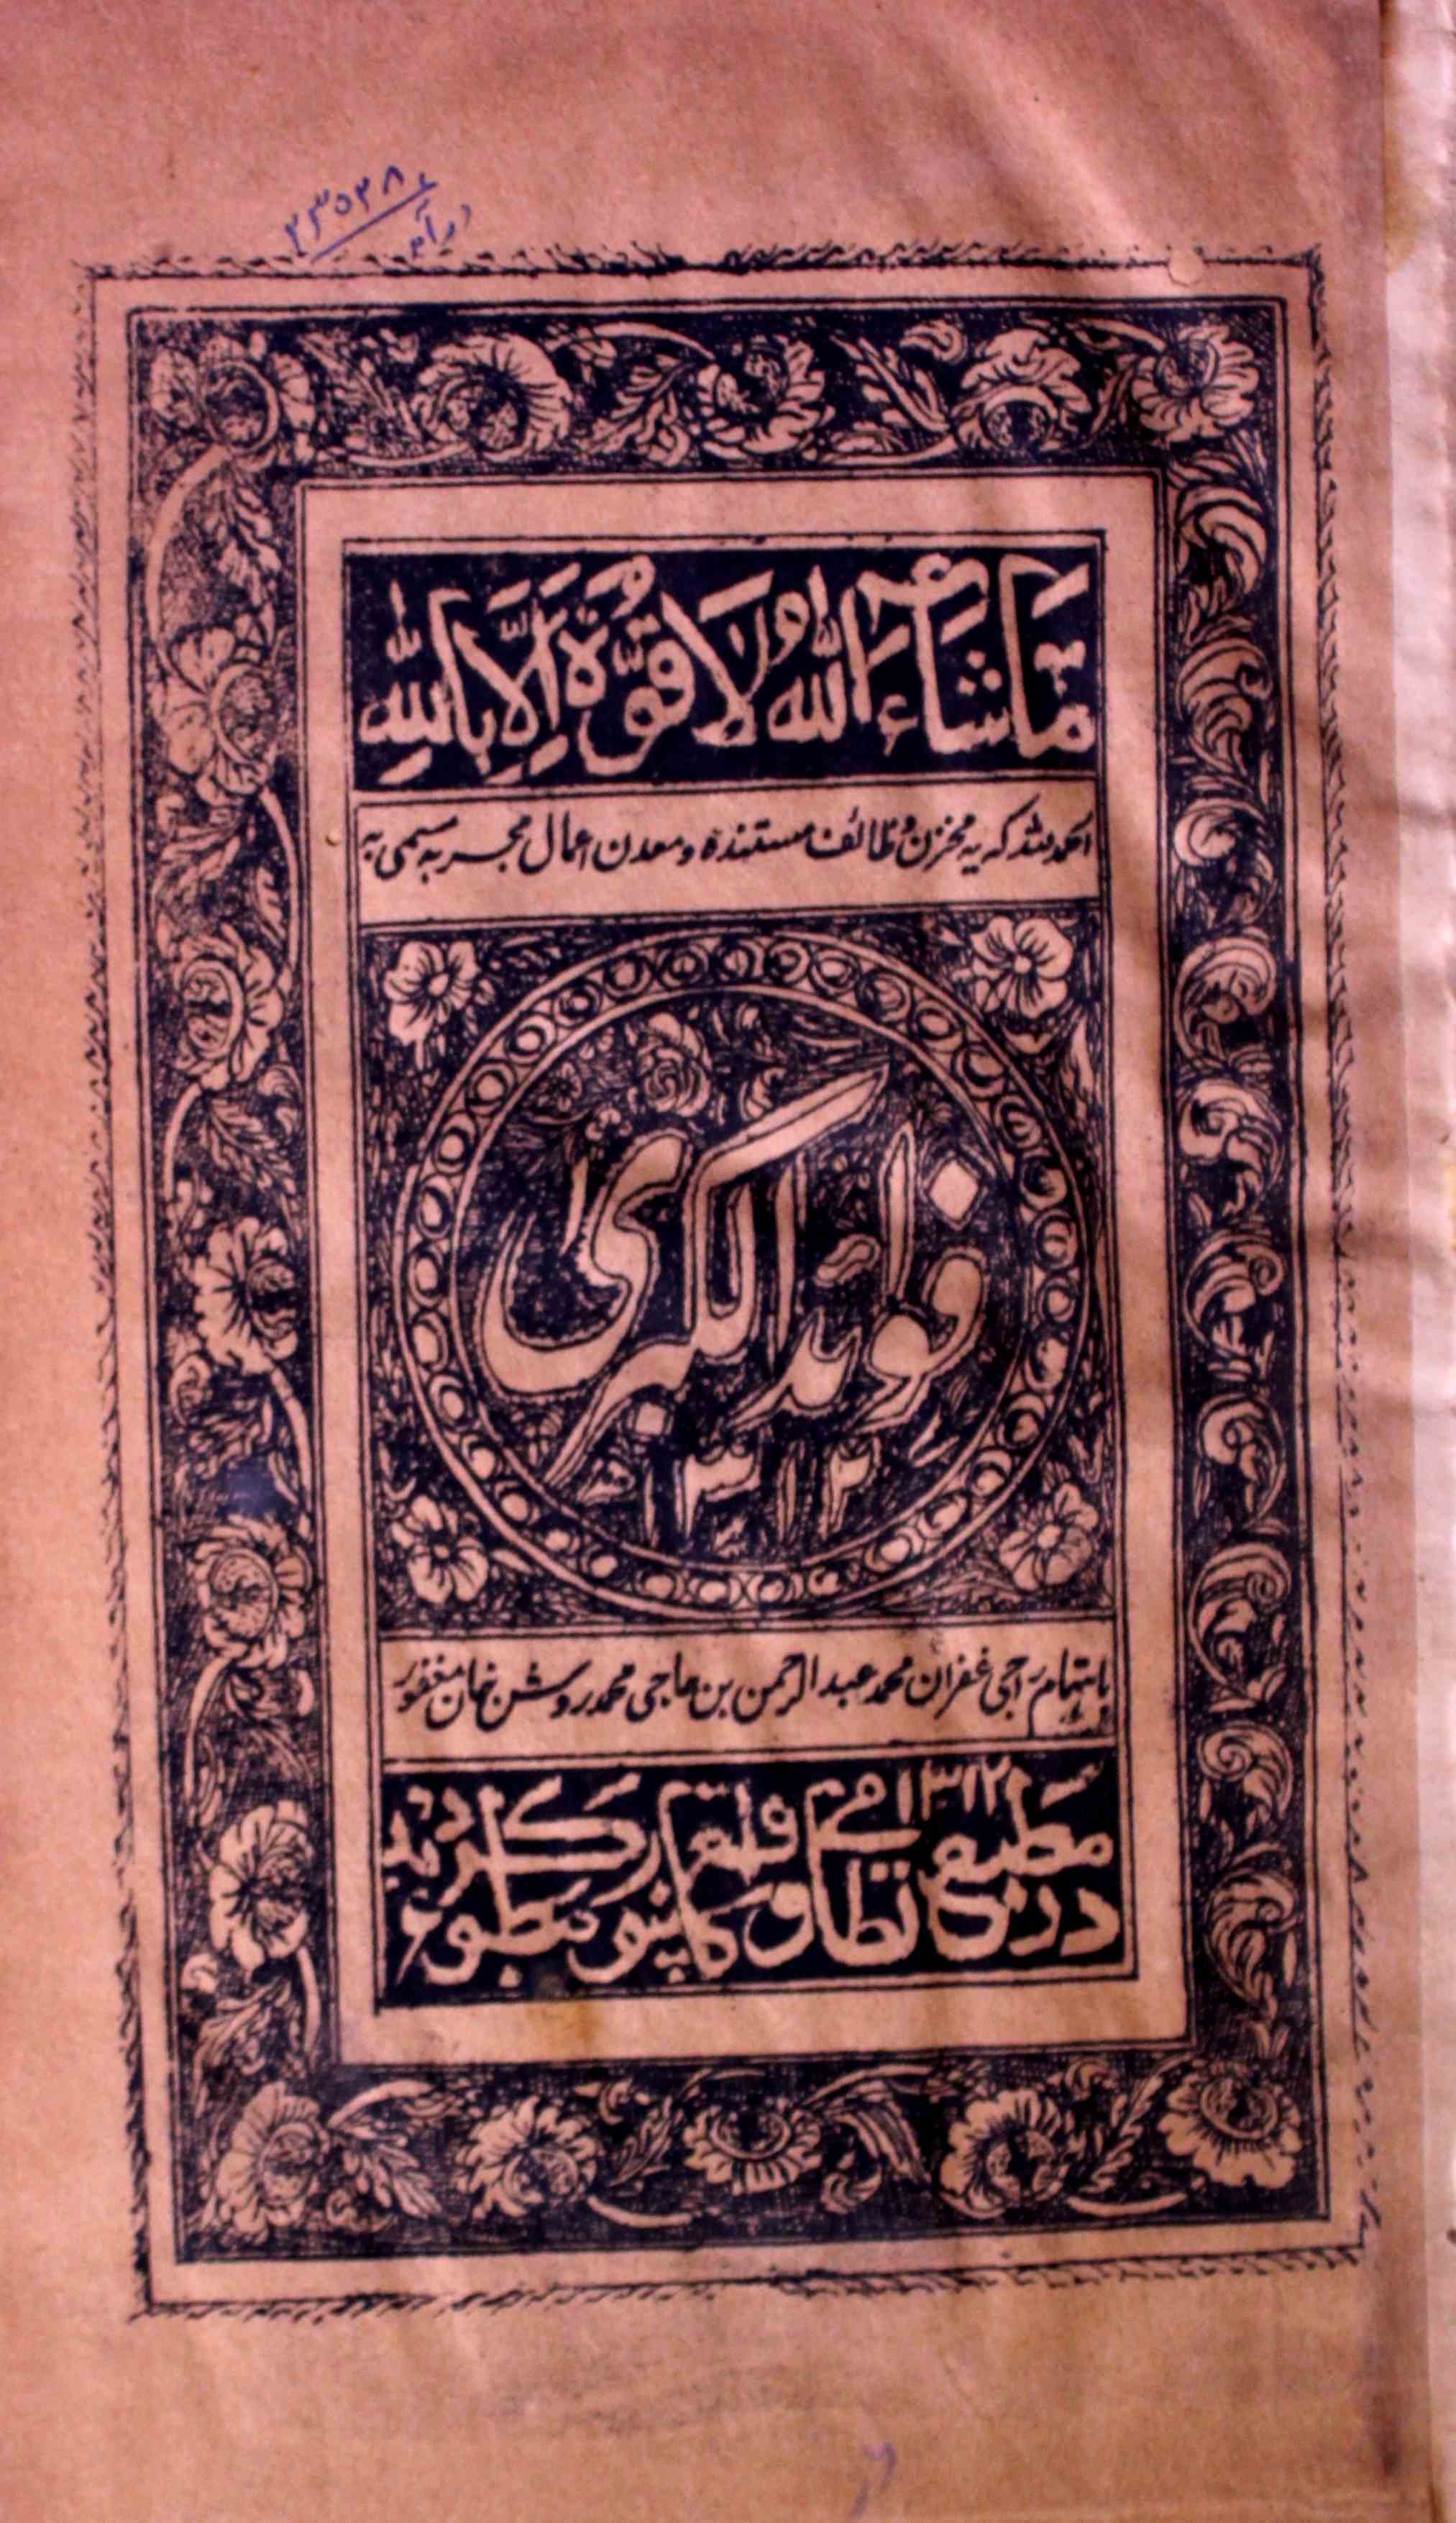 ۲۳۵۳۸
درآمد
مَاشَآءَ اللّٰهُ وَلَا قُوَّةَ اِلَّا بِاللّٰهِ
الحمد للہ کہ یہ مخزن وظائف مستندہ و معدن اعمال مجربہ مسمی بہ
فوائد الکبری
۱۳۱۲
باہتمام راجی غفران محمد عبد الرحمن بن حاجی محمد روشن خان مغفور
در مطبع نظامی واقع کانپور مطبوع گردید
۱۳۱۲